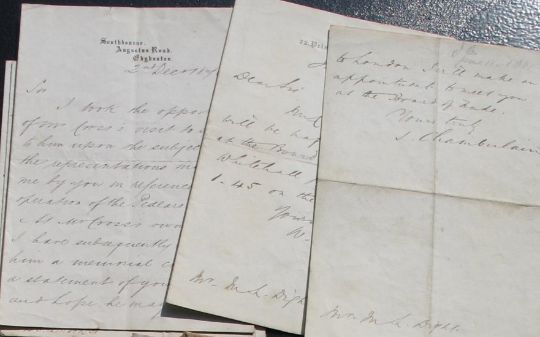 Southbourne,
Augustus Road,
Edgbaston
2nd Dec
Sir
I took the oppor
of Mr Cross's visit to
to him upon the subject
the representations m
me by you in reference
operation of the Pedlars
At Mr Cross's own
I have subsequently
him a memorial c
a statement of you
and hope he ma
Dear Sir
will be hap
at the Board
Whitehall
1.45 on the
Yours
W.
Mr. M. L. Dight
to London I will make an
appointment to meet you
at the Board of Trade.
Yours truly
J. Chamberlain
Mr. M. L. Dight